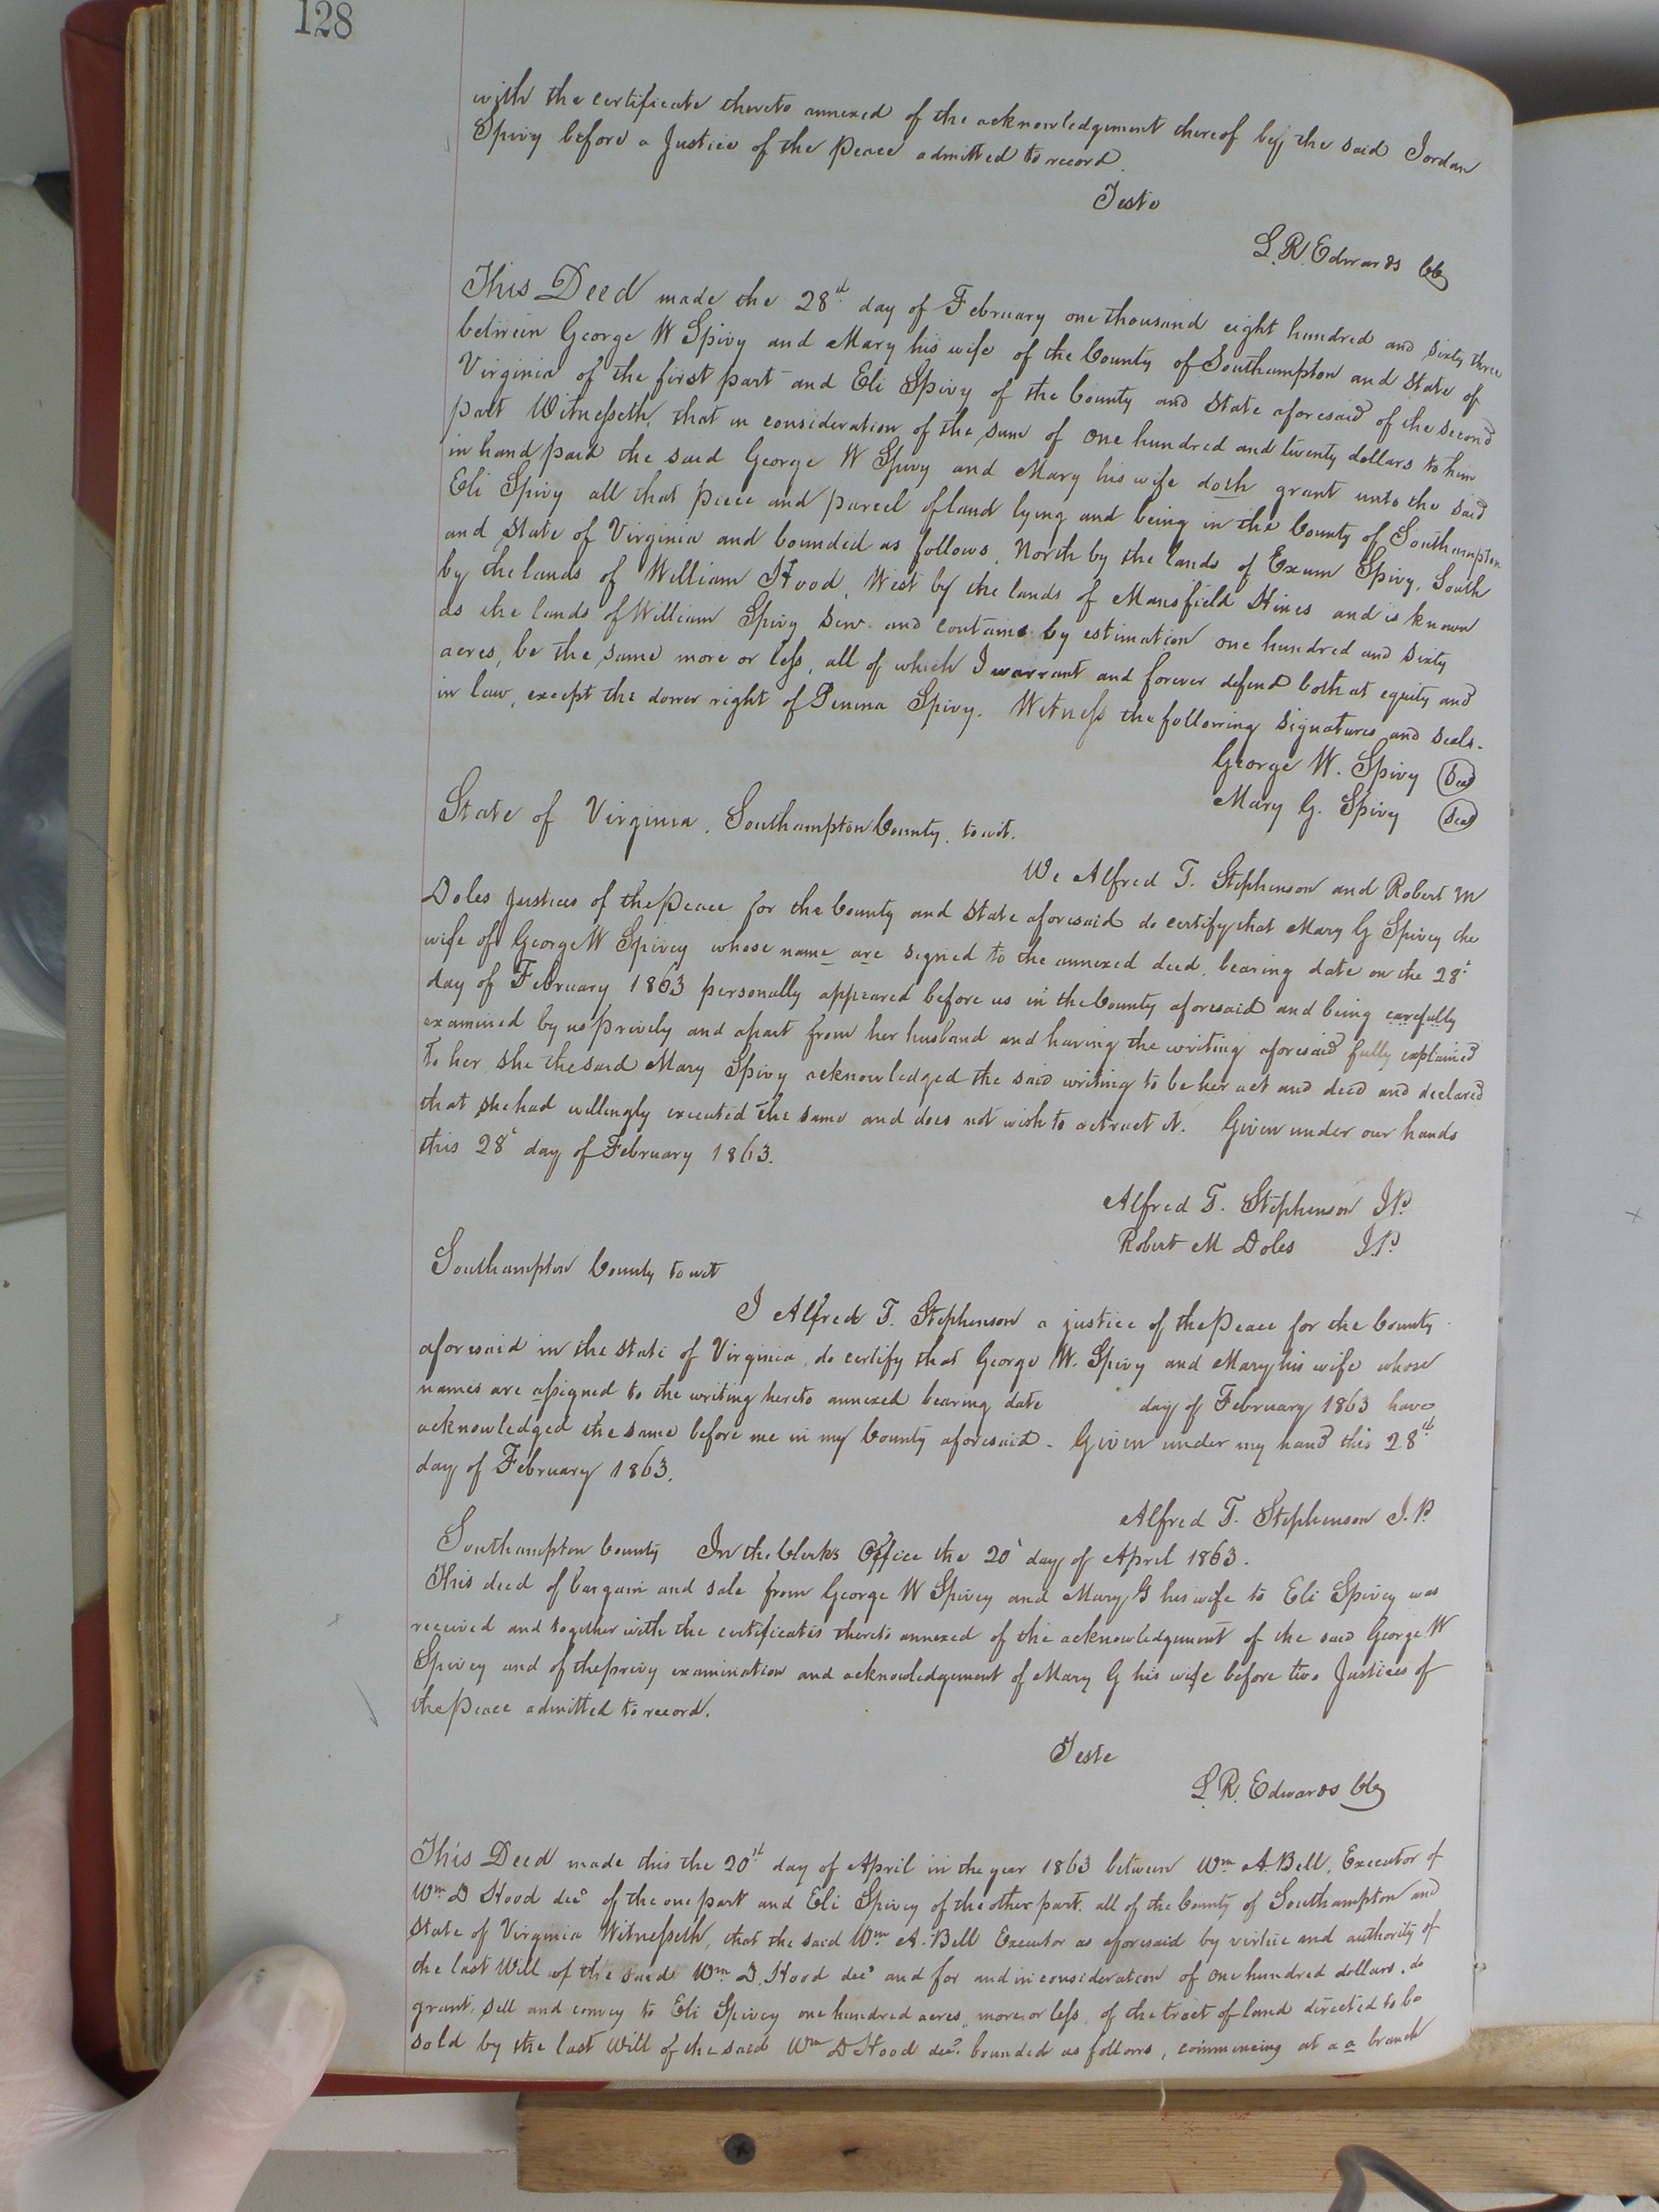 128
with the certificate thereto annexed of the acknowledgement thereof by the said Jordan
Spivy before a Justice of the Peace admitted to record.
Teste
L. R. Edwards Clk
This Deed made the 28th day of February one thousand eight hundred and sixty three
between George W Spivy and Mary his wife of the County of Southampton and State of
Virginia of the first part and Eli Spivy of the County and State aforesaid of the second
part Witnesseth, that in consideration of the sum of one hundred and twenty dollars to him
in hand paid the said George W Spivy and Mary his wife doth grant unto the said
Eli Spivy all that piece and parcel of land lying and being in the County of Southampton
and State of Virginia and bounded as follows, North by the lands of Exum Spivy, South
by the lands of William Hood, West by the lands of Mansfield Hines and is known
as the lands of William Spivy Senr. and contains by estimation one hundred and sixty
acres, be the same more or less, all of which I warrant and forever defend both at equity and
in law, except the dower right of Penina Spivy. Witness the following signatures and seals.
George W. Spivy Seal
Mary G. Spivy Seal
State of Virginia, Southampton County, to wit.
We Alfred T. Stephenson and Robert M
Doles Justices of the Peace for the County and State aforesaid do certify that Mary G Spivey the
wife of George W Spivey whose name are signed to the annexed deed, bearing date on the 28th
day of February 1863 personally appeared before us in the County aforesaid and being carefully
examined by us privily and apart from her husband and having the writing aforesaid fully explained
to her she the said Mary Spivy acknowledged the said writing to be her act and deed and declared
that she had willingly executed the same and does not wish to retract it. Given under our hands
this 28th day of February 1863.
Alfred T. Stephenson J.P.
Robert M Doles J.P.
Southampton County to wit
I Alfred T. Stephenson a justice of the Peace for the County
aforesaid in the State of Virginia, do certify that George W. Spivy and Mary his wife whose
names are assigned to the writing hereto annexed bearing date day of February 1863 have
acknowledged the same before me in my County aforesaid. Given under my hand this 28th
day of February 1863.
Alfred T. Stephenson J.P.
Southampton County In the Clerk's Office the 20th day of April 1863.
This deed of bargain and sale from George W Spivey and Mary G his wife to Eli Spivey was
received and together with the certificates thereto annexed of the acknowledgement of the said George W
Spivey and of the privy examination and acknowledgement of Mary G his wife before two Justices of
the Peace admitted to record.
Teste
L. R. Edwards Clk
This Deed made this the 20th day of April in the year 1863 between Wm A. Bell, Executor of
Wm D Hood decd of the one part and Eli Spivey of the other part, all of the County of Southampton and
State of Virginia Witnesseth, that the said Wm A. Bell Executor as aforesaid by virtue and authority of
the last Will of the said Wm D. Hood decd and for and in consideration of one hundred dollars, do
grant, sell and convey to Eli Spivey one hundred acres, more or less, of the tract of land directed to be
sold by the last Will of the said Wm D Hood decd. bounded as follows, commencing at a a branch